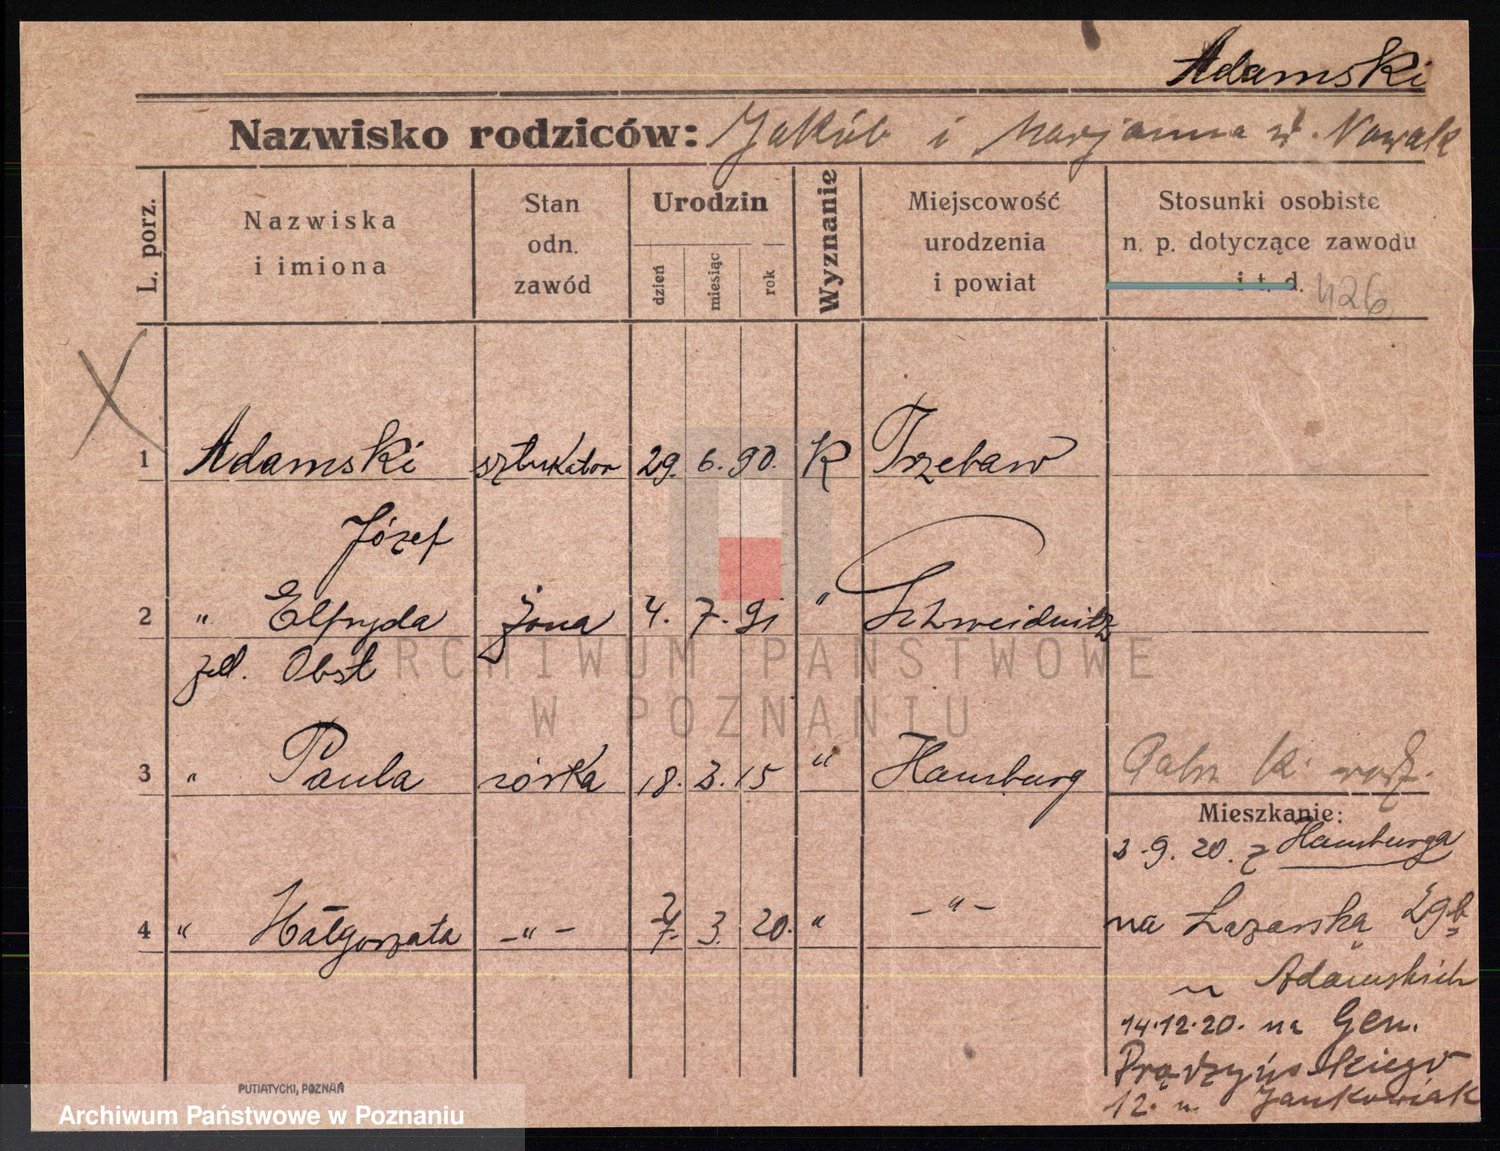 Adamski
Nazwisko rodziców: Jakób i Marjanna z d. Nowak
L. porz.
Nazwiska
i imiona
Stan
odn.
zawód
Urodzin
dzień
miesiąc
rok
Wyznanie
Miejscowość
urodzenia
i powiat
Stosunki osobiste
n. p. dotyczące zawodu
i t. d. 426
1 Adamski sztukator 29. 6. 90. K Trzebaw
Józef
2 " Elfryda żona 4. 7. 91 " Schweidnitz
zd. Obst
3 " Paula córka 18. 3. 15 " Hamburg
Mieszkanie:
3.9.20. z Hamburga
4 " Małgorzata -"- 7. 3. 20. " -"-
na Łazarską 29b
u Adamskich
14.12.20. na Gen.
Prądzyńskiego
12. u Jankowiak
PUTIATYCKI, POZNAŃ
ARCHIWUM PAŃSTWOWE
W POZNANIU
Archiwum Państwowe w Poznaniu